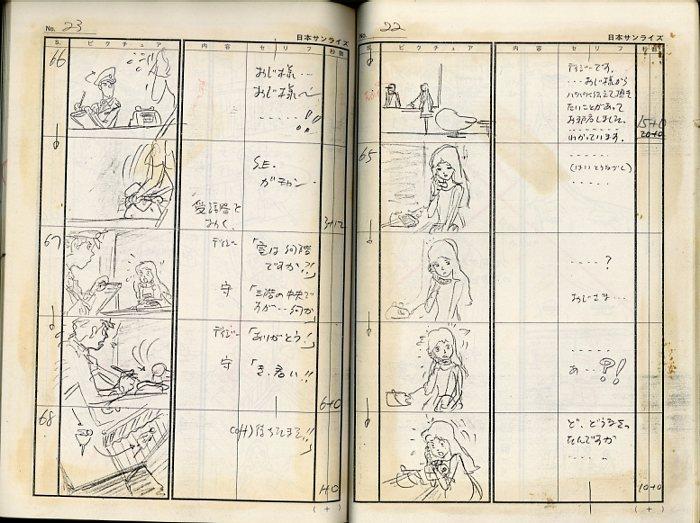 No. 22
日本サンライズ
ピクチュア 内容 セリフ 秒数
デイジーです。
・・・おじ様から
伝えて頂き
たいことがあって
お電話しました。
・・・・・・・
わかっています。
15+0
20+0
65
・・・・・
(はいとうなづく)
・・・・・
・・・・・?
おじさま・・・
・・・・・
あ・・・?!
ど、どうなさっ
たんですか
10+0
( + )
No. 23
日本サンライズ
S. ピクチュア 内容 セリフ 秒数
66
おじ様・・・
おじ様〜
・・・・・!!
S.E.
ガチャン
受話器を
3+12
67
デイジー 「室は何階
ですか?!」
守 「三階の中央で
すが・・何か」
デイジー 「ありがとう!」
守 「き、君い!!」
6+0
68
(off)待ちたまえ!!」
( + )